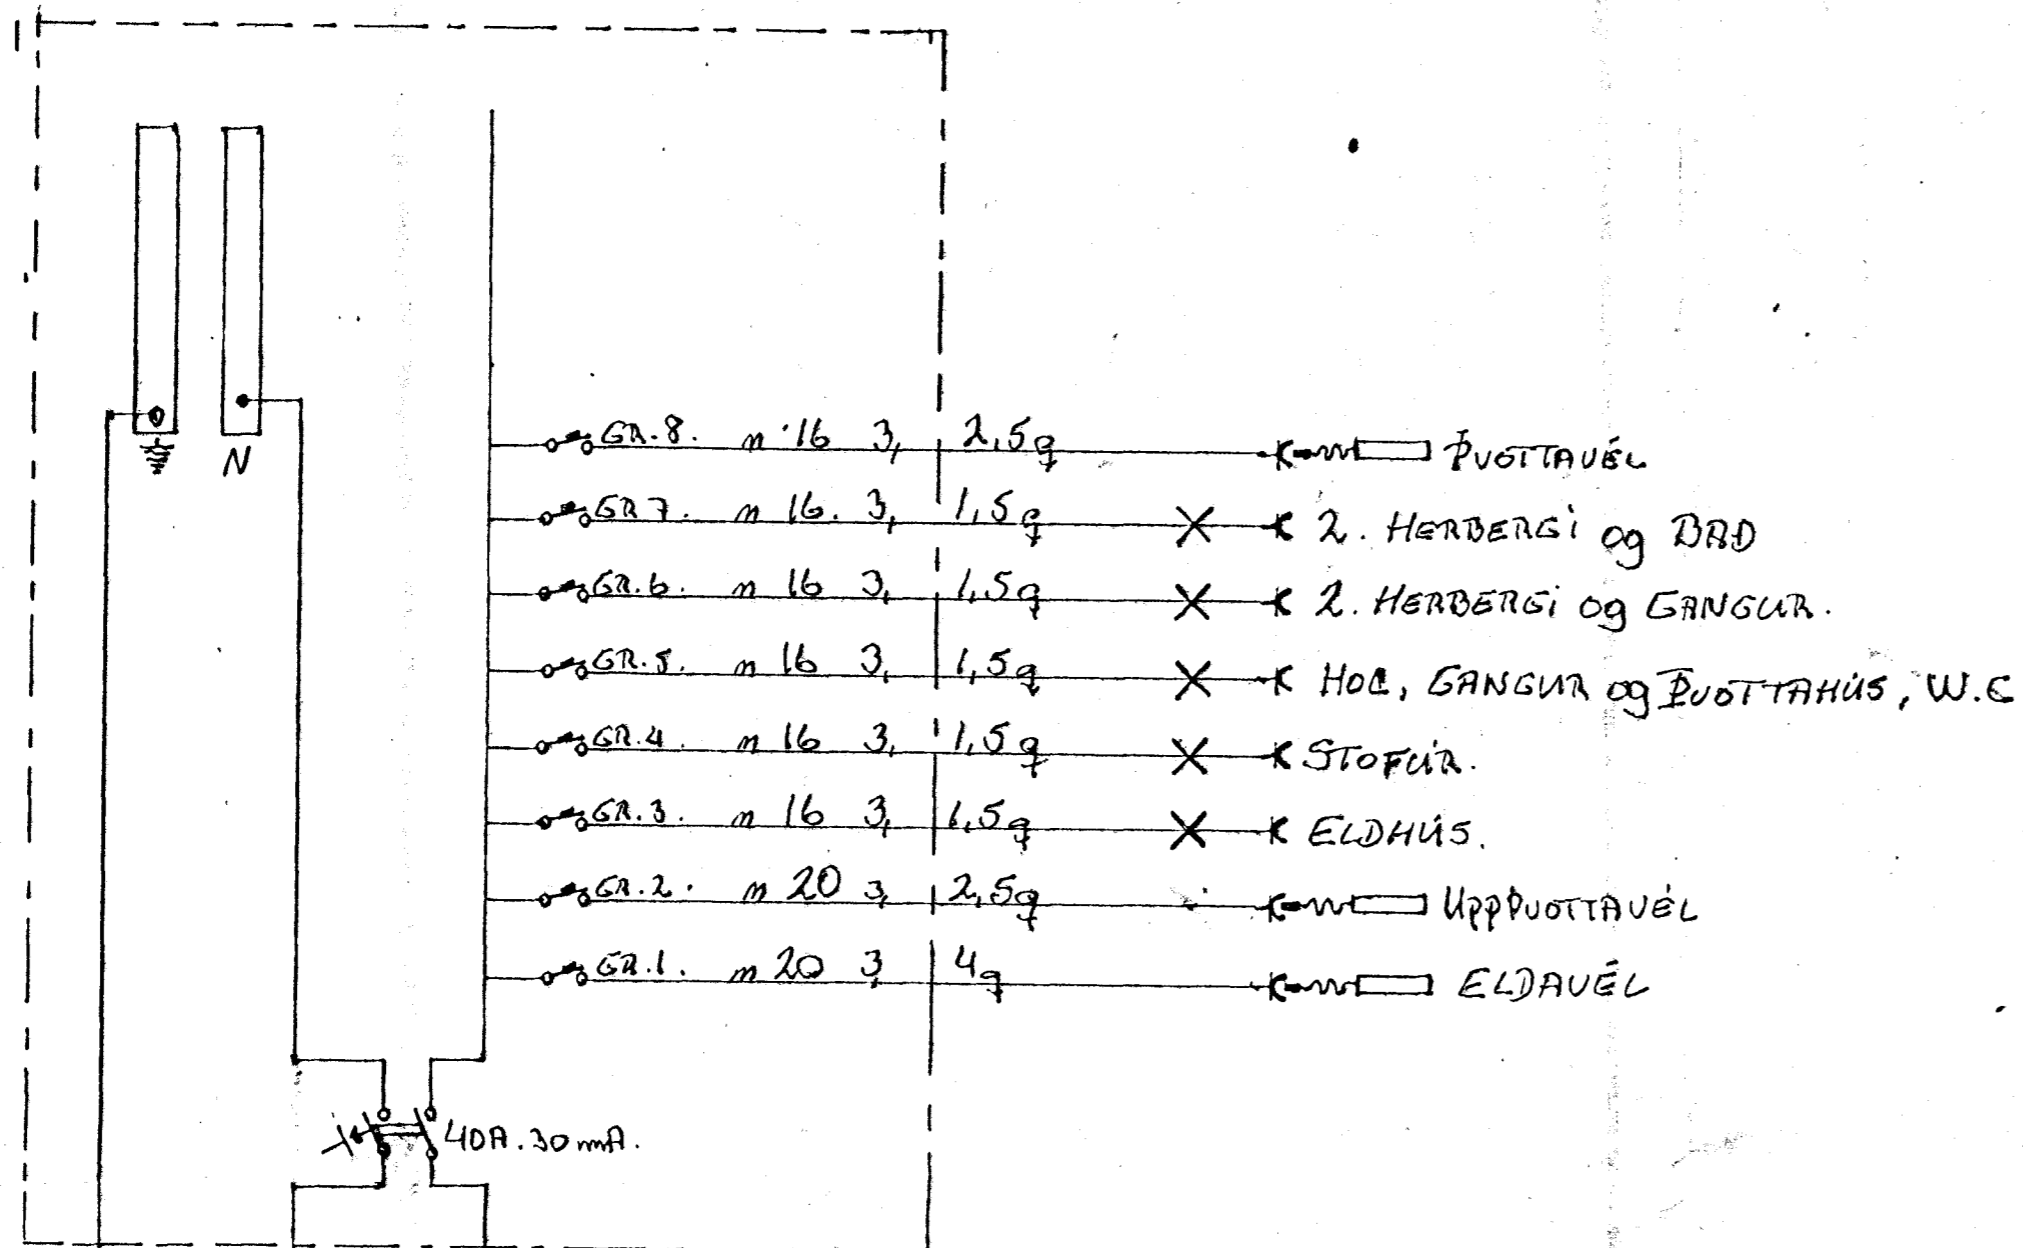 GR.8. n 16 3, 2,5q ÞVOTTAVÉL
N
GR 7. n 16. 3, 1,5q 2. HERBERGI og BAÐ
GR.6. n 16 3, 1,5q 2. HERBERGI og GANGUR.
GR.5. n 16 3, 1,5q HOL, GANGUR og ÞVOTTAHÚS, W.C
GR.4. n 16 3, 1,5q STOFUR.
GR.3. n 16 3, 1,5q ELDHÚS.
GR.2. n 20 3, 2,5q UPPÞVOTTAVÉL
GR.1. n 20 3, 4q ELDAVÉL
40A.30mA.